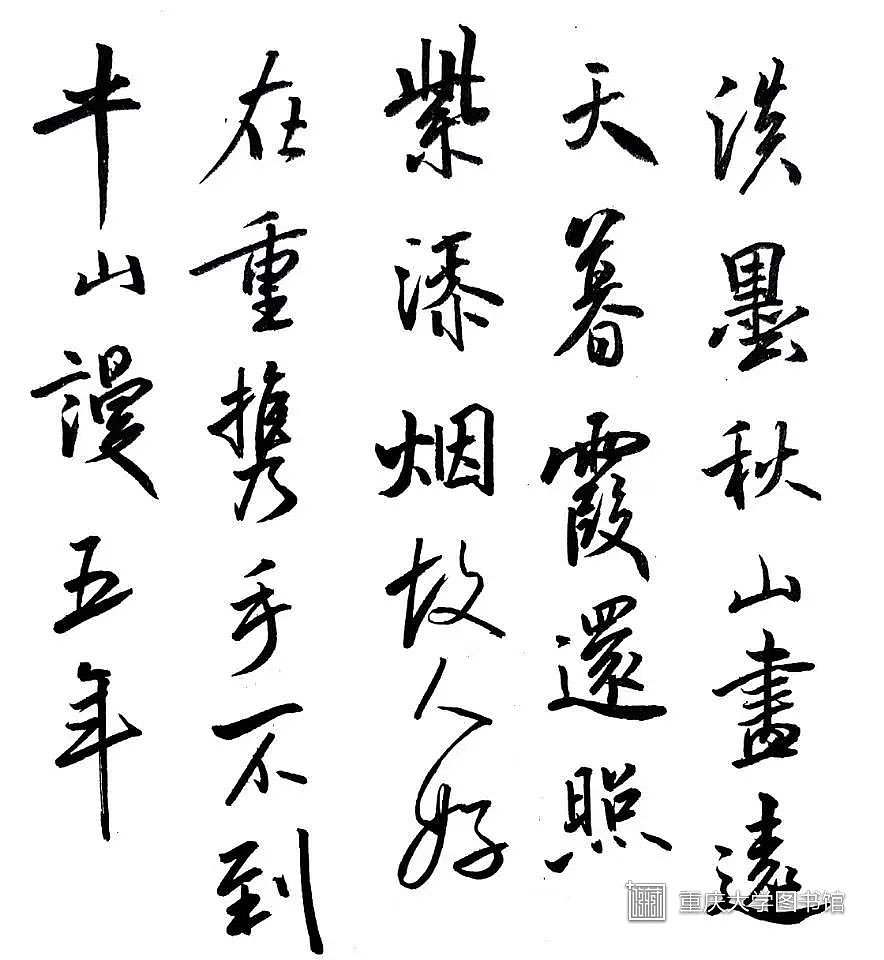 淡墨秋山畫遠
天暮霞還照
紫添烟故人好
在重携手不到
平山謾五年
重庆大学图书馆